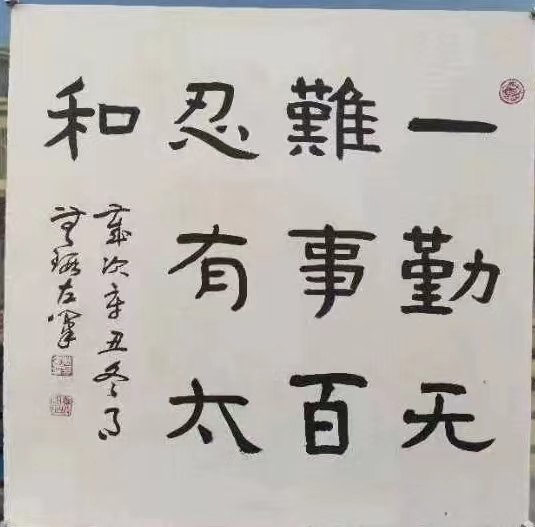 一勤无
難事百
忍有太
和
歲次辛丑冬月
左筆